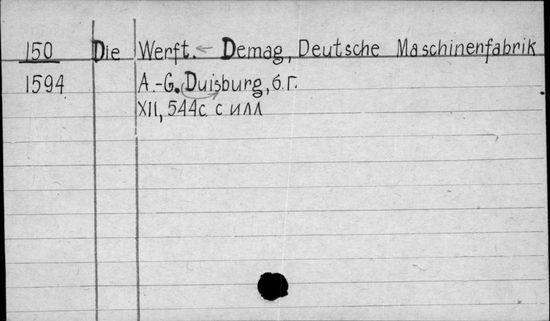 150 Die Werft. – Demag, Deutsche Maschinenfabrik
1594 A.-G. Duisburg, б.г.
XII, 544с. с илл